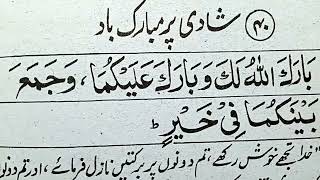 ۴۰ شادی پر مبارک باد
بَارَكَ اللهُ لَكَ وَبَارَكَ عَلَيْكُمَا، وَجَمَعَ
بَيْنَكُمَا فِيْ خَيْرٍ ط
"خدا تجھے خوش رکھے، تم دونوں پر برکتیں نازل فرمائے، اور تم دونوں